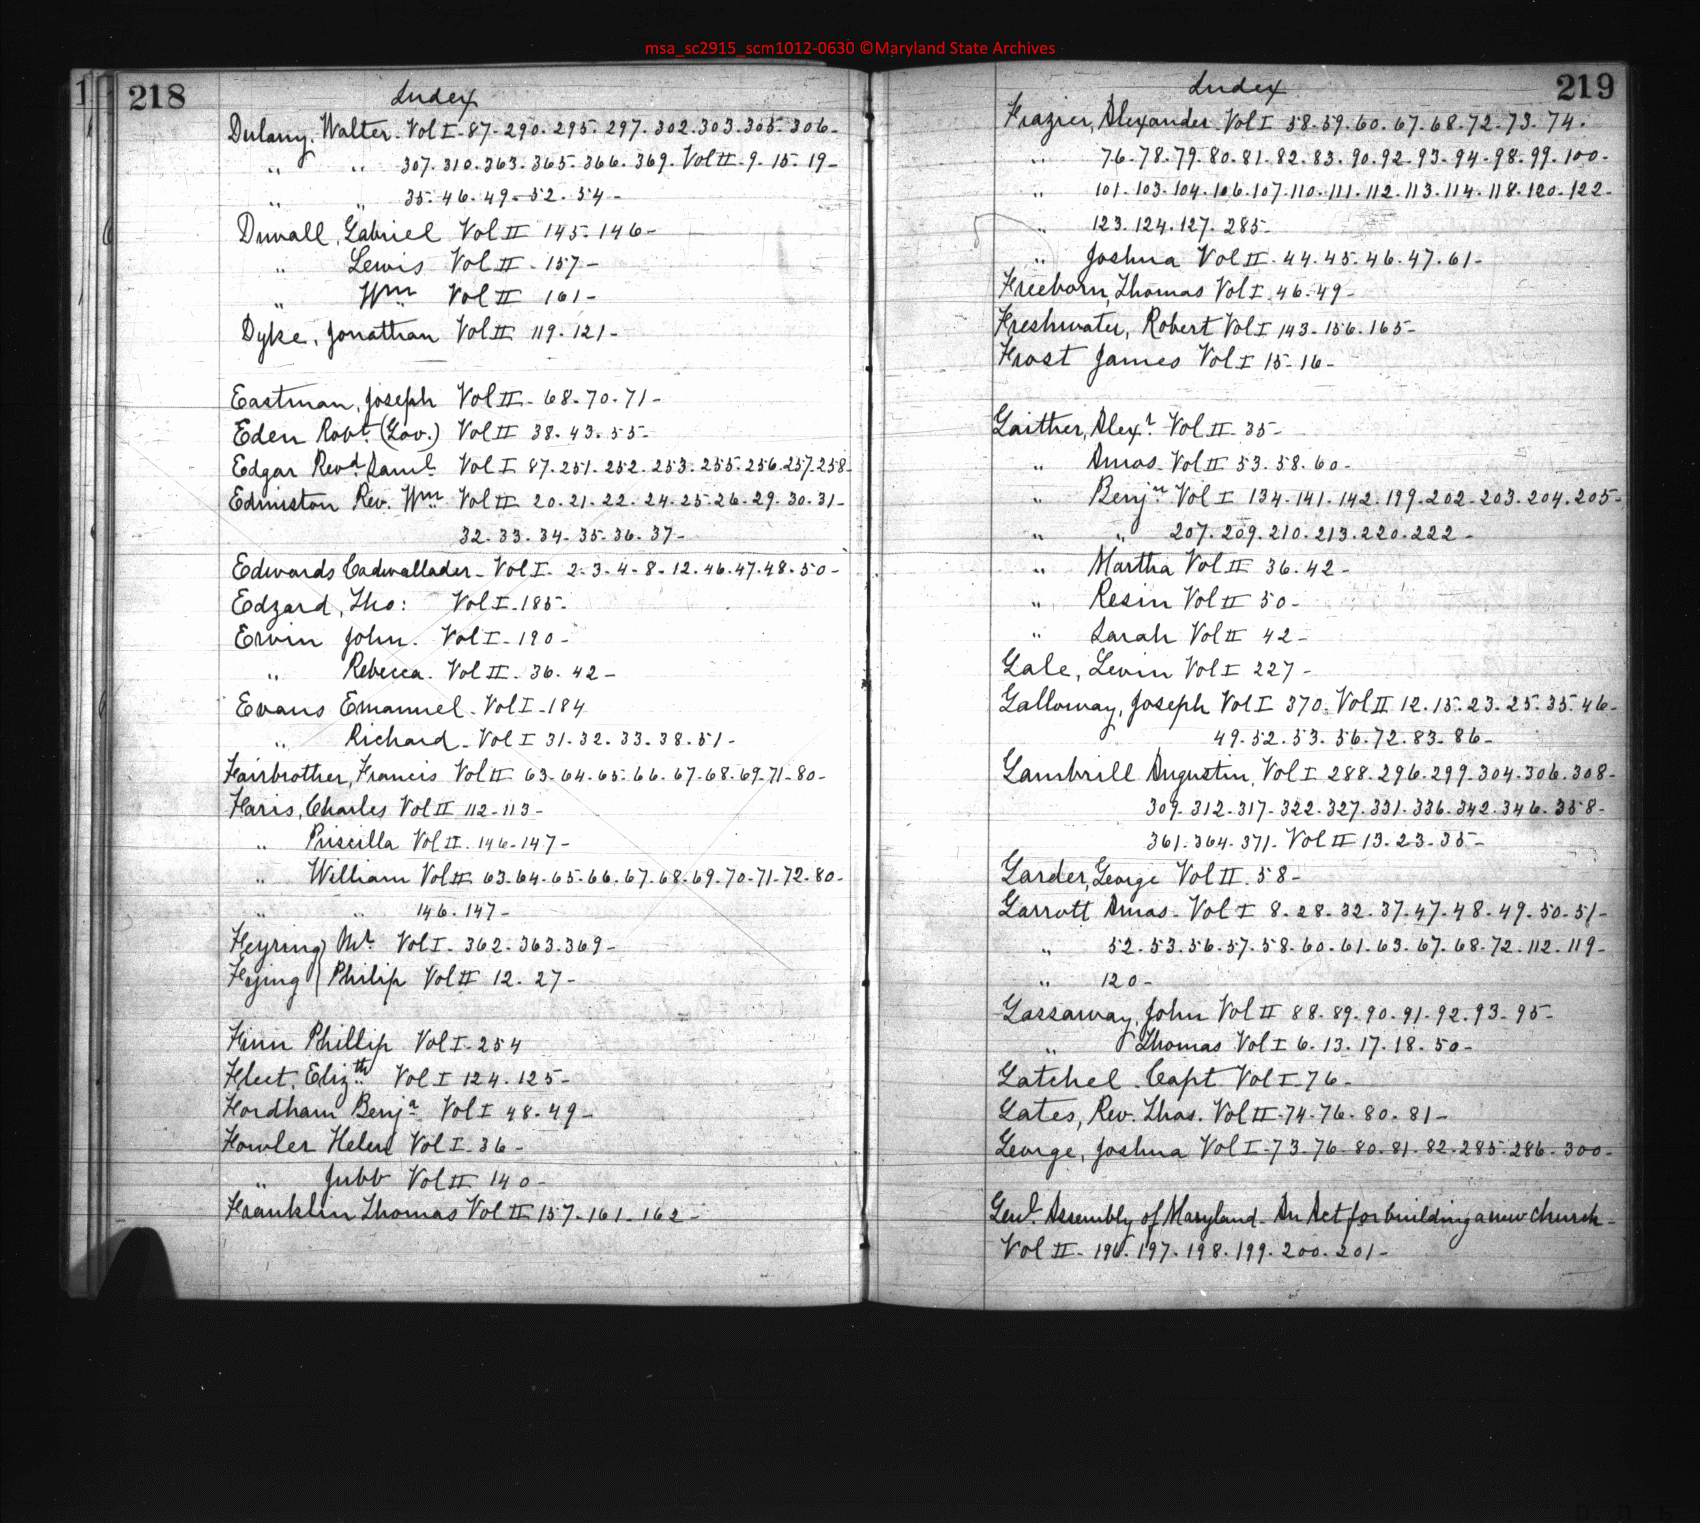 msa_sc2915_scm1012-0630 ©Maryland State Archives
218
Index
Dulany, Walter. Vol I- 87- 290- 295- 297. 302. 303. 305- 306-
" " 307. 310. 363. 365- 366. 369. Vol II- 9- 15- 19-
" " 35- 46- 49- 52. 54-
Duvall, Gabriel Vol II 145- 146-
" Lewis Vol II - 157-
" Wm Vol II 161-
Dyke, Jonathan Vol II 119. 121-
Eastman, Joseph Vol II - 68. 70. 71-
Eden Robt (Gov.) Vol II 38. 43. 55-
Edgar Revd Saml Vol I 87. 251. 252. 253. 255. 256. 257. 258-
Edmiston Rev. Wm Vol II 20. 21. 22. 24. 25. 26. 29. 30. 31-
32. 33. 34. 35. 36. 37-
Edwards Cadwallader- Vol I- 2. 3. 4. 8- 12. 46. 47. 48. 50-
Edzard, Tho: Vol I- 185-
Ervin John. Vol I- 190-
" Rebecca. Vol II. 36. 42-
Evans Emanuel- Vol I- 184
" Richard- Vol I 31. 32. 33. 38. 51-
Fairbrother, Francis Vol II 63. 64. 65. 66. 67. 68. 69. 71- 80-
Faris, Charles Vol II 112- 113-
" Priscilla Vol II. 146- 147-
" William Vol II 63. 64. 65. 66. 67. 68. 69. 70. 71. 72. 80-
" " 146. 147-
Feyring) Mr. Vol I- 362. 363. 369-
Fejing ) Philip Vol II 12. 27-
Finn Phillip Vol I- 254
Fleet, Elizth Vol I 124. 125-
Fordham Benja Vol I 48- 49-
Fowler Helen Vol I- 36-
" Jubb Vol II 140-
Franklin Thomas Vol II 157- 161- 162-
219
Index
Frazier, Alexander Vol I 58. 59. 60. 67. 68. 72. 73. 74.
" 76. 78. 79. 80. 81. 82. 83. 90. 92. 93. 94. 98. 99. 100.
" 101. 103. 104. 106. 107. 110. 111. 112. 113. 114. 118. 120. 122-
" 123. 124. 127. 285-
" Joshua Vol II - 44. 45. 46. 47. 61-
Freeborn, Thomas Vol I 46. 49-
Freshwater, Robert Vol I 143. 156. 165-
Frost James Vol I 15- 16-
Gaither, Alexr Vol II 35-
" Amos. Vol II 53. 58. 60-
" Benjn Vol I 134. 141. 142. 199. 202- 203. 204. 205-
" " 207. 209. 210. 213. 220. 222-
" Martha Vol II 36. 42-
" Resin Vol II 50-
" Sarah Vol II 42-
Gale, Levin Vol I 227-
Galloway, Joseph Vol I 370. Vol II 12. 15. 23. 25. 35. 46-
49. 52. 53. 56. 72. 83. 86-
Gambrill Augustin, Vol I 288. 296. 299. 304. 306. 308-
309. 312. 317. 322. 327. 331. 336. 342. 346. 358-
361. 364. 371. Vol II 13. 23. 35-
Garder, George Vol II 58-
Garrott Amas- Vol I 8. 28. 32. 37. 47. 48. 49. 50. 51-
" 52. 53. 56. 57. 58. 60. 61. 63. 67. 68. 72. 112. 119-
" 120-
Gassaway, John Vol II 88. 89. 90. 91. 92. 93. 95-
" Thomas Vol I 6. 13. 17. 18. 50-
Gatchel- Capt Vol I- 76-
Gates, Rev. Thos. Vol II- 74. 76. 80. 81-
George, Joshua Vol I- 73. 76. 80. 81. 82. 285. 286. 300-
Genl Assembly of Maryland- An Act for building a new church-
Vol II- 196. 197. 198. 199. 200. 201-